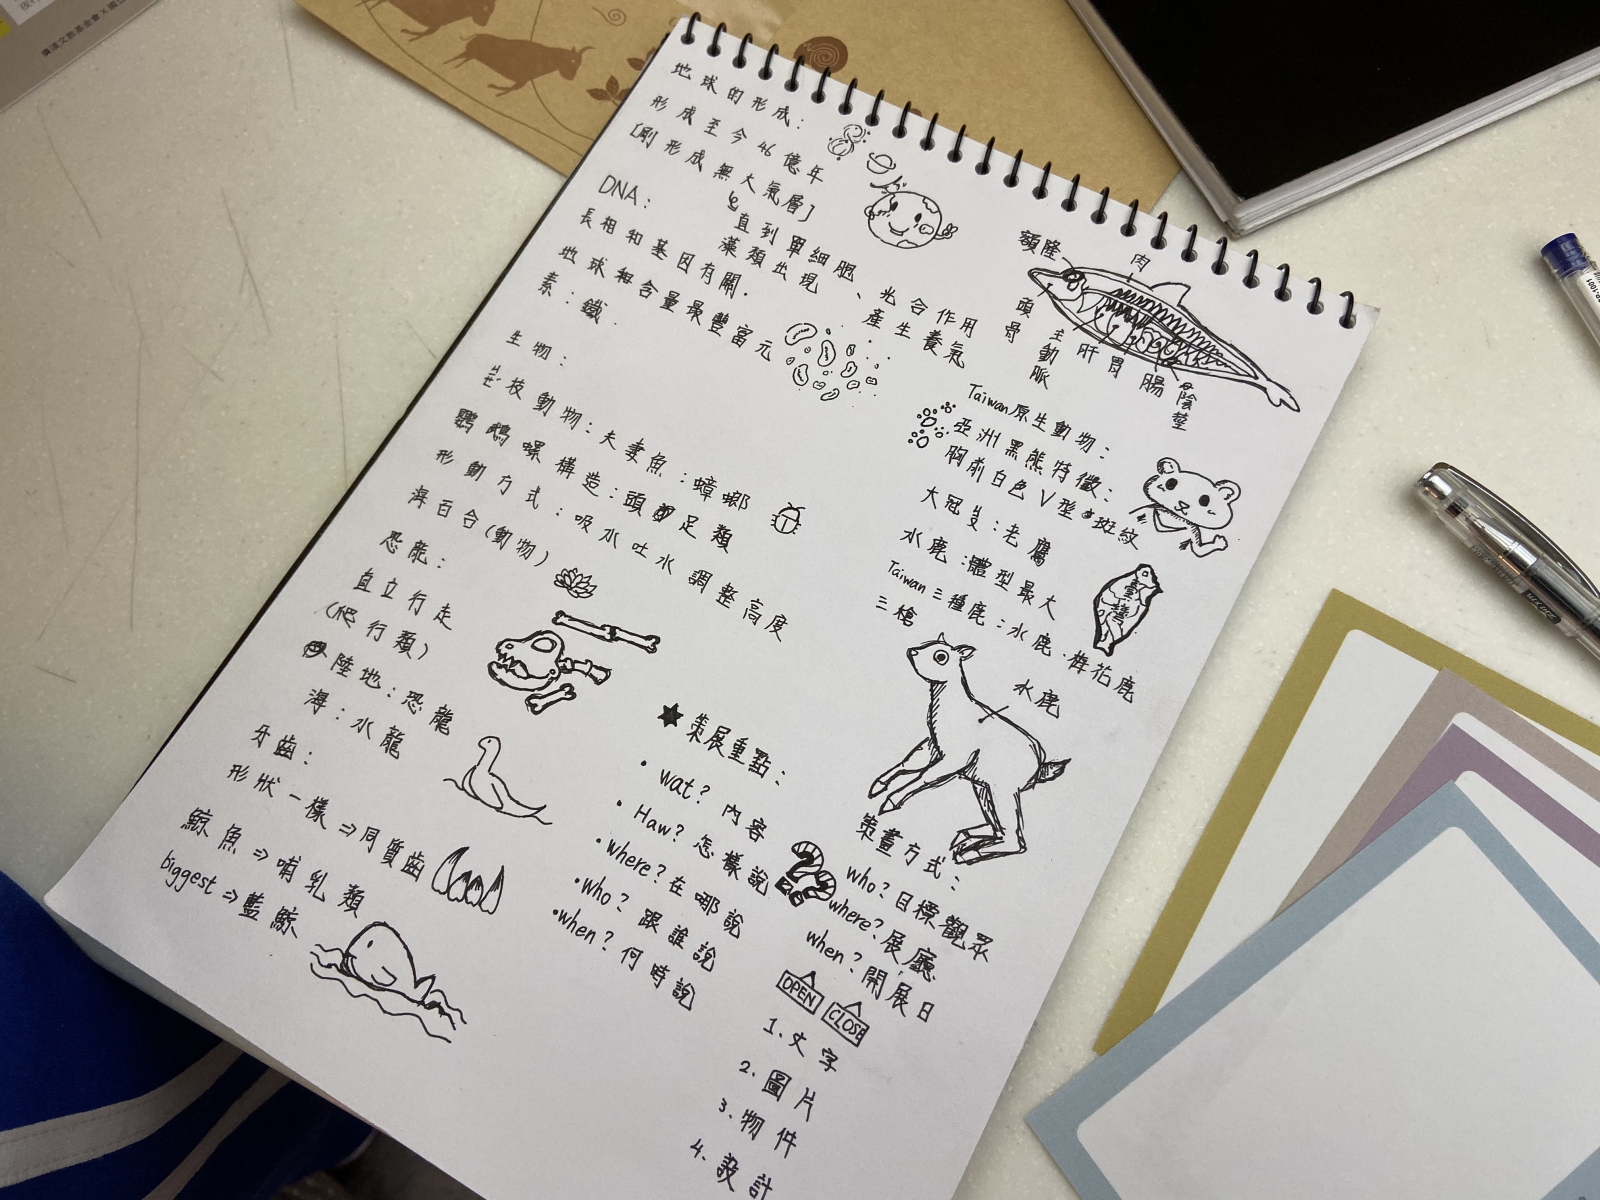 廣達文教基金會X國立
地球的形成：
形成至今46億年
[剛形成無大氣層]
直到單細胞、光合作用
藻類出現 產生養氣
DNA：
長相和基因有關.
地球和含量最豐富元
素：鐵.
生物：
枝動物：夫妻魚：蟑螂
鸚鵡螺構造：頭足類
形動方式：吸水吐水調整高度
海百合(動物)
恐龍：
直立行走
(爬行類)
陸地：恐龍
海：水龍
牙齒：
形狀一樣⇒同質齒
鯨魚⇒哺乳類
biggest⇒藍鯨
★策展重點：
• wat? 內容
• Haw? 怎樣說
• where? 在哪說
• who? 跟誰說
• when? 何時說
??
額隆
肉
頭骨
主動脈
肝
胃
腸
陰莖
Taiwan原生動物：
亞洲黑熊特徵：
胸前白色V型斑紋
大冠鷲：老鷹
水鹿：體型最大
Taiwan三種鹿：水鹿.梅花鹿
三槍
臺灣
水鹿
策畫方式：
who?目標觀眾
where?展廳
when?開展日
OPEN
CLOSE
1.文字
2.圖片
3.物件
4.設計